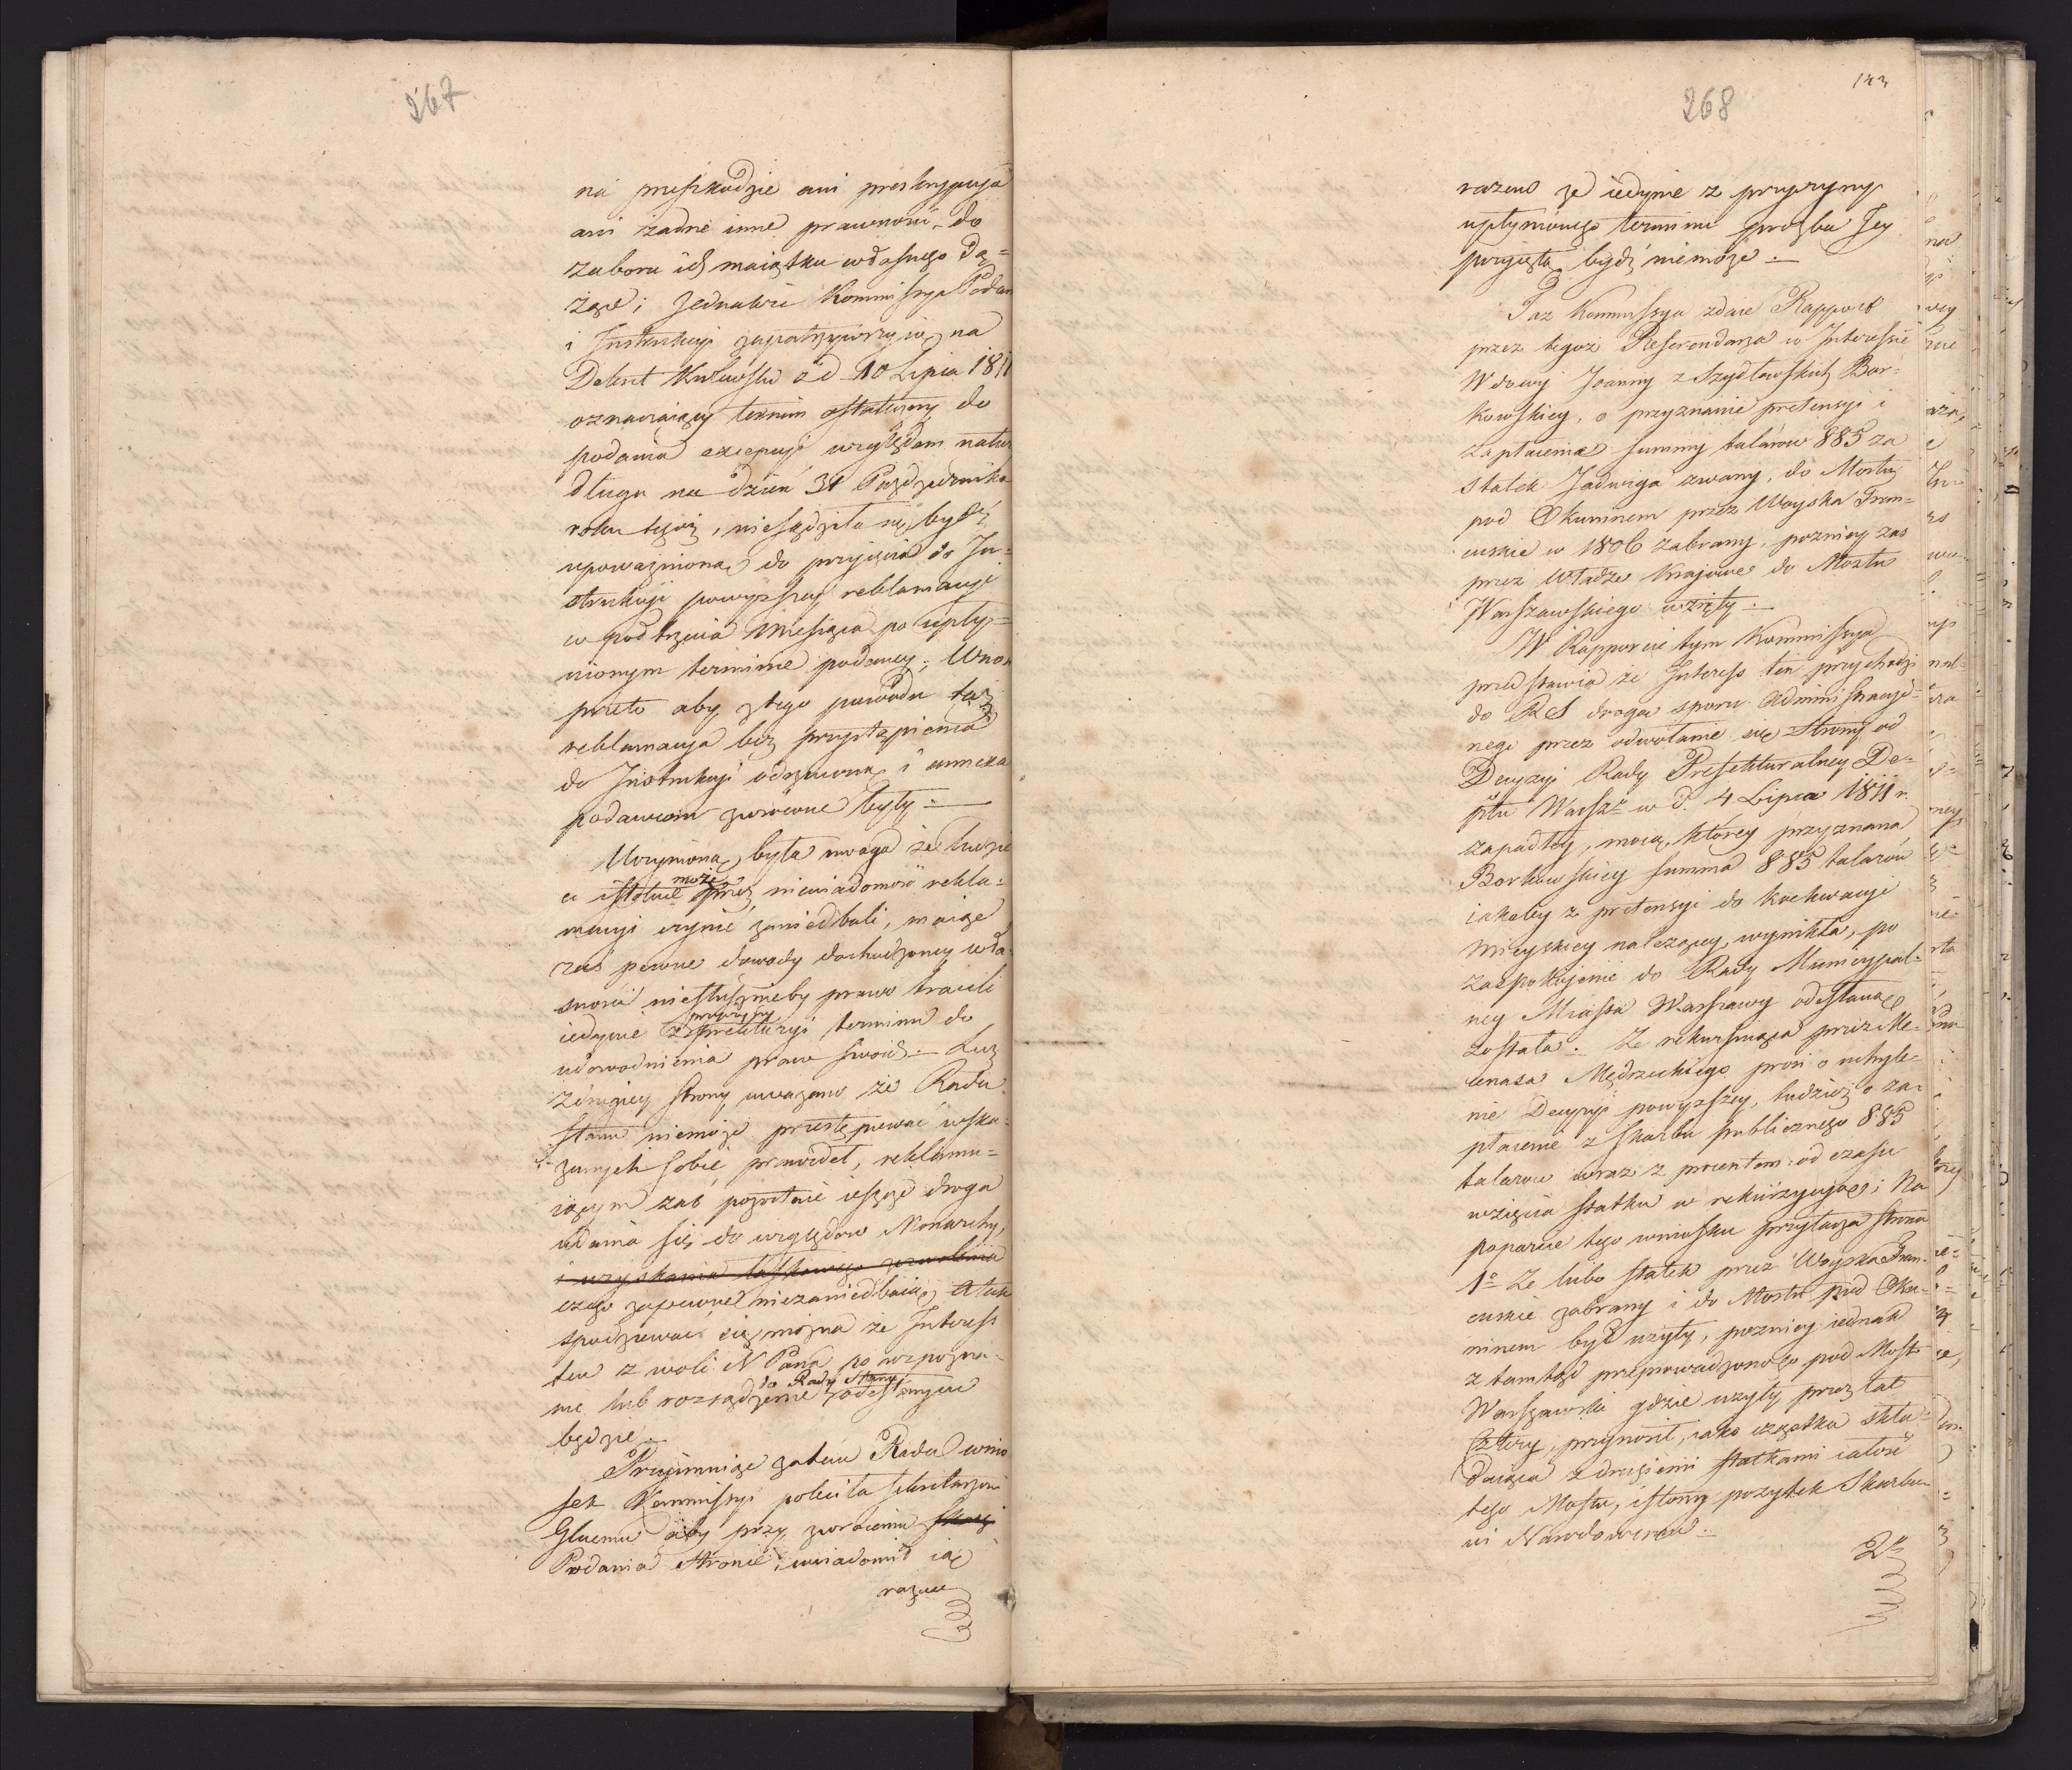 267
na przeszkodzie ani preskrypcyja
ani żadne inne prawności do
zaboru ich maiątku własnego dą=
żące; Jednakże Kommissya Podań
i Instrukcyi zapatrzywszy się na
Dekret Królewski z d. 10 Lipca 1811
oznaczaiący termin ostateczny do
podania excepcyi względem natury
długu na dzień 31 Października
roku tegoż, niesądziła się bydź
upoważnioną do przyięcia do In=
strukcyi powyższey reklamacyi
w pół trzecia Miesiąca po upły=
nionym terminie podaney; Wnosi
przeto aby z tego powodu taż
reklamacya bez przystąpienia
do Instrukcyi odrzucona i annexa
podawcom zwrócone były.
Uczyniona była uwaga że ludzie
ci istotnie może przez niewiadomość rekla=
macyi czynić zaniedbali, maiące
zaś pewne dowody dochodzoney wła=
sności niesłusznieby prawo tracili
iedynie z przyczyny prekluzyi terminu do
udowodnienia praw swoich. Lecz
z drugiey strony uważano że Rada
Stanu niemoże przestępować wska=
zanych sobie prawideł, reklamu=
iącym zaś pozostaie ieszcze droga
udania się do względów Monarchy,
i uzyskania łaskawego zezwolenia
czego zapewne niezaniedbaią, a tak
spodziewać się można że Interess
ten z woli N Pana po rozpozna=
nie lub rozsądzenie do Rady Stanu odesłanym
będzie.
Przyimuiąc zatem Rada wnio
sek Kommissyi poleciła Sekretarzowi
Głnemu aby przy zwróceniu
Podania Stronie, uwiadomił ią
razem
143
268
razem że iedynie z przyczyny
upłynionego terminu prośba Jey
przyiętą bydź niemoże.
Taż Kommissya zdaie Rapport
przez tegoż Referendarza w Interessie
Wdowy Joanny z Szydłowskich Bor=
kowskiey, o przyznanie pretensyi i
zapłacenie summy talarow 885 za
statek Jadwiga zwany, do Mostu
pod Okuninem przez Woyska Fran=
cuskie w 1806 zabrany, pozniey zas
przez Władze Kraiowe do Mostu
Warszawskiego wzięty.
W Rapporcie tym Kommissya
przedstawia że Interess ten przychodzi
do R S drogą sporu Administracyi=
nego przez odwołanie się Strony od
Decyzyi Rady Prefekturalney De=
ptu Warszo w d. 4 Lipca 1811 r.
zapadłey, mocą, którey przyznana
Borkowskiey summa 885 talarow
iakoby z pretensyi do kwaterunku
Mieyskiey należącey wynikła, po
zaspokoienie do Rady Municypal=
ney Miasta Warszawy odesłana
została. Że rekursuiąca przez Me=
cenasa Mędrzeckiego prosi o uchyle=
nie Decyzyi powyższey, tudzież o za=
płacenie z Skarbu publicznego 885
talarow wraz z procentem od czasu
wzięcia statku w rekwizycyą; Na
poparcie tego wniosku przytacza strona
1o Że lubo statek przez Woyska Fran=
cuskie zabrany i do Mostu pod Oku=
ninem był użyty, pozniey iednak
z tamtąd przeprowadzonego pod Most
Warszawski gdzie użyty przez lat
cztery, przynosił, iako cząstka skła=
daiąca z drugiemi statkami całość
tego Mostu, istotny pożytek Skarbo=
wi Narodowemu.
2o